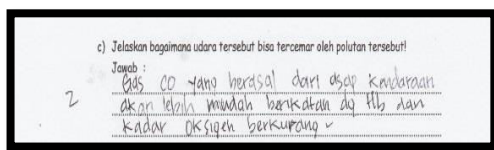 c) Jelaskan bagaimana udara tersebut bisa tercemar oleh polutan tersebut!
Jawab :
Gas CO yang berasal dari asap kendaraan
2 akan lebih mudah berikatan dg Hb dan
kadar oksigen berkurang